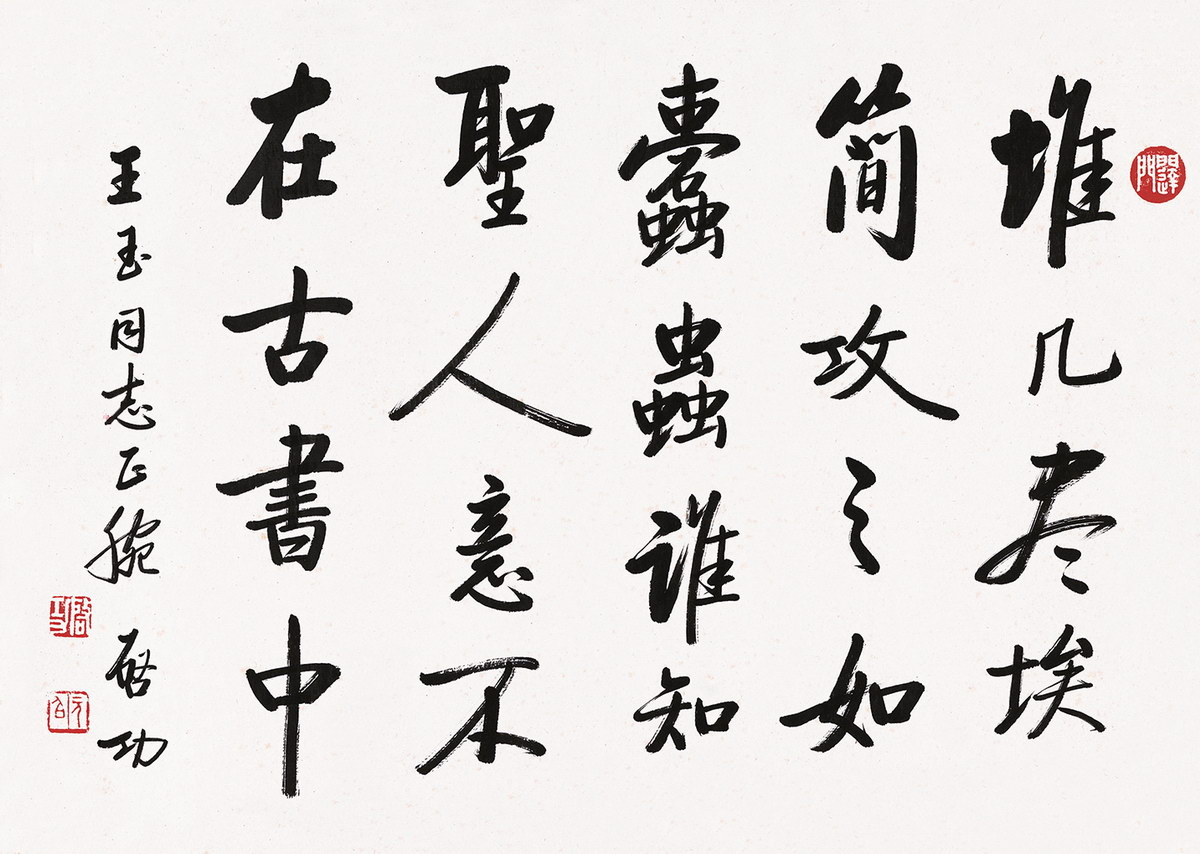 堆几尽埃
简攻之如
蠹蟲谁知
聖人意不
在古書中
王玉同志正腕 啓功
啓功
元白